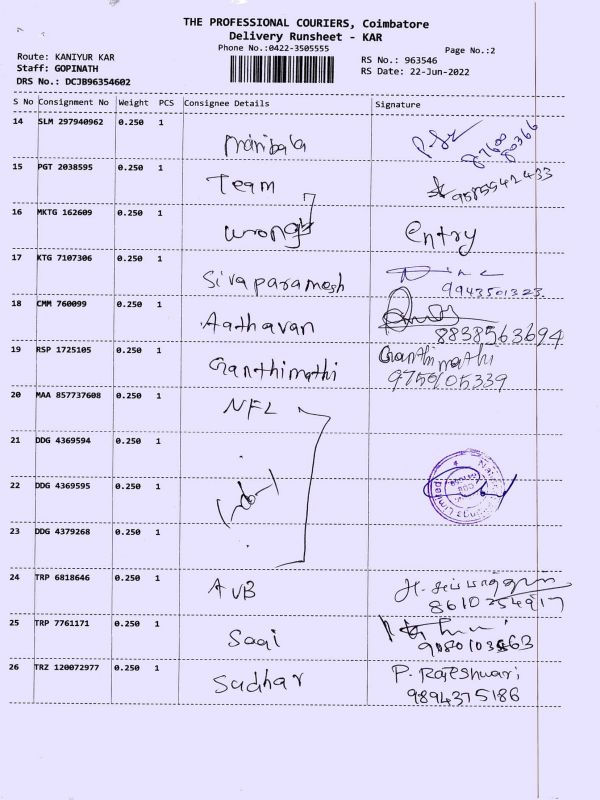 THE PROFESSIONAL COURIERS, Coimbatore
Delivery Runsheet - KAR
Phone No.:0422-3505555
Page No.:2
Route: KANIYUR KAR
RS No.: 963546
Staff: GOPINATH
RS Date: 22-Jun-2022
DRS No.: DCJB96354602
S No Consignment No Weight PCS Consignee Details Signature
14 SLM 297940962 0.250 1
15 PGT 2038595 0.250 1 Team 9585542433
16 MKTG 162609 0.250 1 wrong entry
17 KTG 7107306 0.250 1 Sivaparamesh
9943501323
18 CMM 760099 0.250 1 Aathavan
8838563694
19 RSP 1725105 0.250 1 Ganthimathi Ganthimathi
9750105339
20 MAA 857737608 0.250 1 NFL
21 DDG 4369594 0.250 1
22 DDG 4369595 0.250 1
23 DDG 4379268 0.250 1
24 TRP 6818646 0.250 1 AVB
8610254917
25 TRP 7761171 0.250 1
26 TRZ 120072977 0.250 1 Sudhar P. Rajeshwari
9894375186